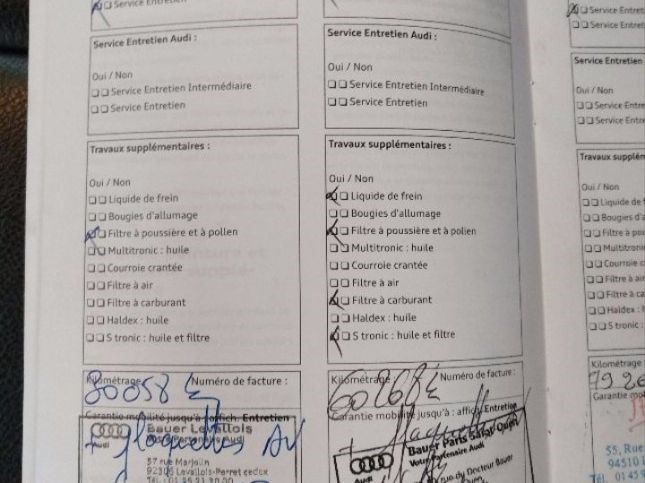 Service Entretien
Service Entretien Audi :
Oui / Non
Service Entretien Intermédiaire
Service Entretien
Travaux supplémentaires :
Oui / Non
Liquide de frein
Bougies d'allumage
Filtre à poussière et à pollen
Multitronic : huile
Courroie crantée
Filtre à air
Filtre à carburant
Haldex : huile
S tronic : huile et filtre
Kilométrage Numéro de facture :
80058
Garantie mobilité jusqu'à : affich. Entretien
+ plaquettes AV
Audi
Bauer Levallois
Partenaire Audi
57 rue Marjolin
92300 Levallois-Perret cedex
Service Entretien Audi :
Oui / Non
Service Entretien Intermédiaire
Service Entretien
Travaux supplémentaires :
Oui / Non
Liquide de frein
Bougies d'allumage
Filtre à poussière et à pollen
Multitronic : huile
Courroie crantée
Filtre à air
Filtre à carburant
Haldex : huile
S tronic : huile et filtre
Kilométrage Numéro de facture :
60268
Garantie mobilité jusqu'à : affich. Entretien
Audi
Bauer Paris Saint Ouen
Votre Partenaire Audi
rue du Docteur Bauer
Ouen
Service Entret
Service Entret
Service Entretien
Oui / Non
Service Entre
Service Entre
Travaux supplém
Oui / Non
Liquide de f
Bougies d'a
Filtre à pou
Multitroni
Courroie c
Filtre à air
Filtre à ca
Haldex : h
S tronic :
Kilométrage
79 26
Garantie mobi
55, Rue
94510
Tél. 01 45 9